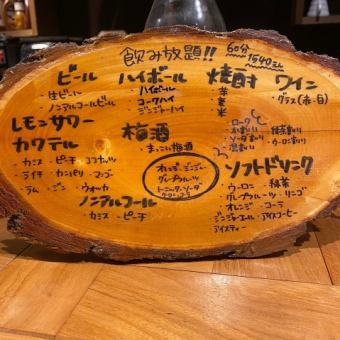 飲み放題!! 60分 1540えん
ビール
・生ビール
・ノンアルコールビール
ハイボール
・ハイボール
・コークハイ
・ジンジャーハイ
焼酎
・芋
・麦
・米
ワイン
・グラス(赤・白)
レモンサワー
カクテル
・カシス・ピーチ・ココナッツ
・ライチ・カンパリ・マンゴー
・ラム・ジン・ウォッカ
梅酒
・まっこい梅酒
・ロック
・水割り
・ソーダ割り
・お湯割り
・緑茶割り
・ウーロン割り
オレンジ・ジンジャー
グレープフルーツ
トニック・ソーダ
ノンアルコール
・カシス・ピーチ
ソフトドリンク
・ウーロン・緑茶
・グレープフルーツ・リンゴ
・オレンジ・コーラ
・ジンジャエール・アイスコーヒー
・アイスティー